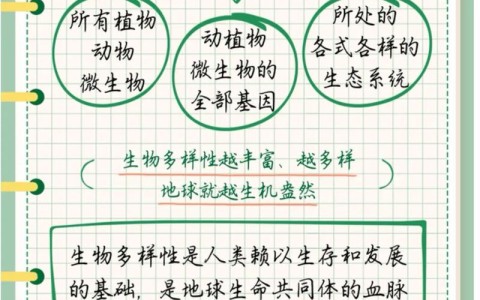 所有植物
动物
微生物
动植物
微生物的
全部基因
所处的
各式各样的
生态系统
生物多样性越丰富、越多样
地球就越生机盎然
生物多样性是人类赖以生存和发展
的基础，是地球生命共同体的血脉